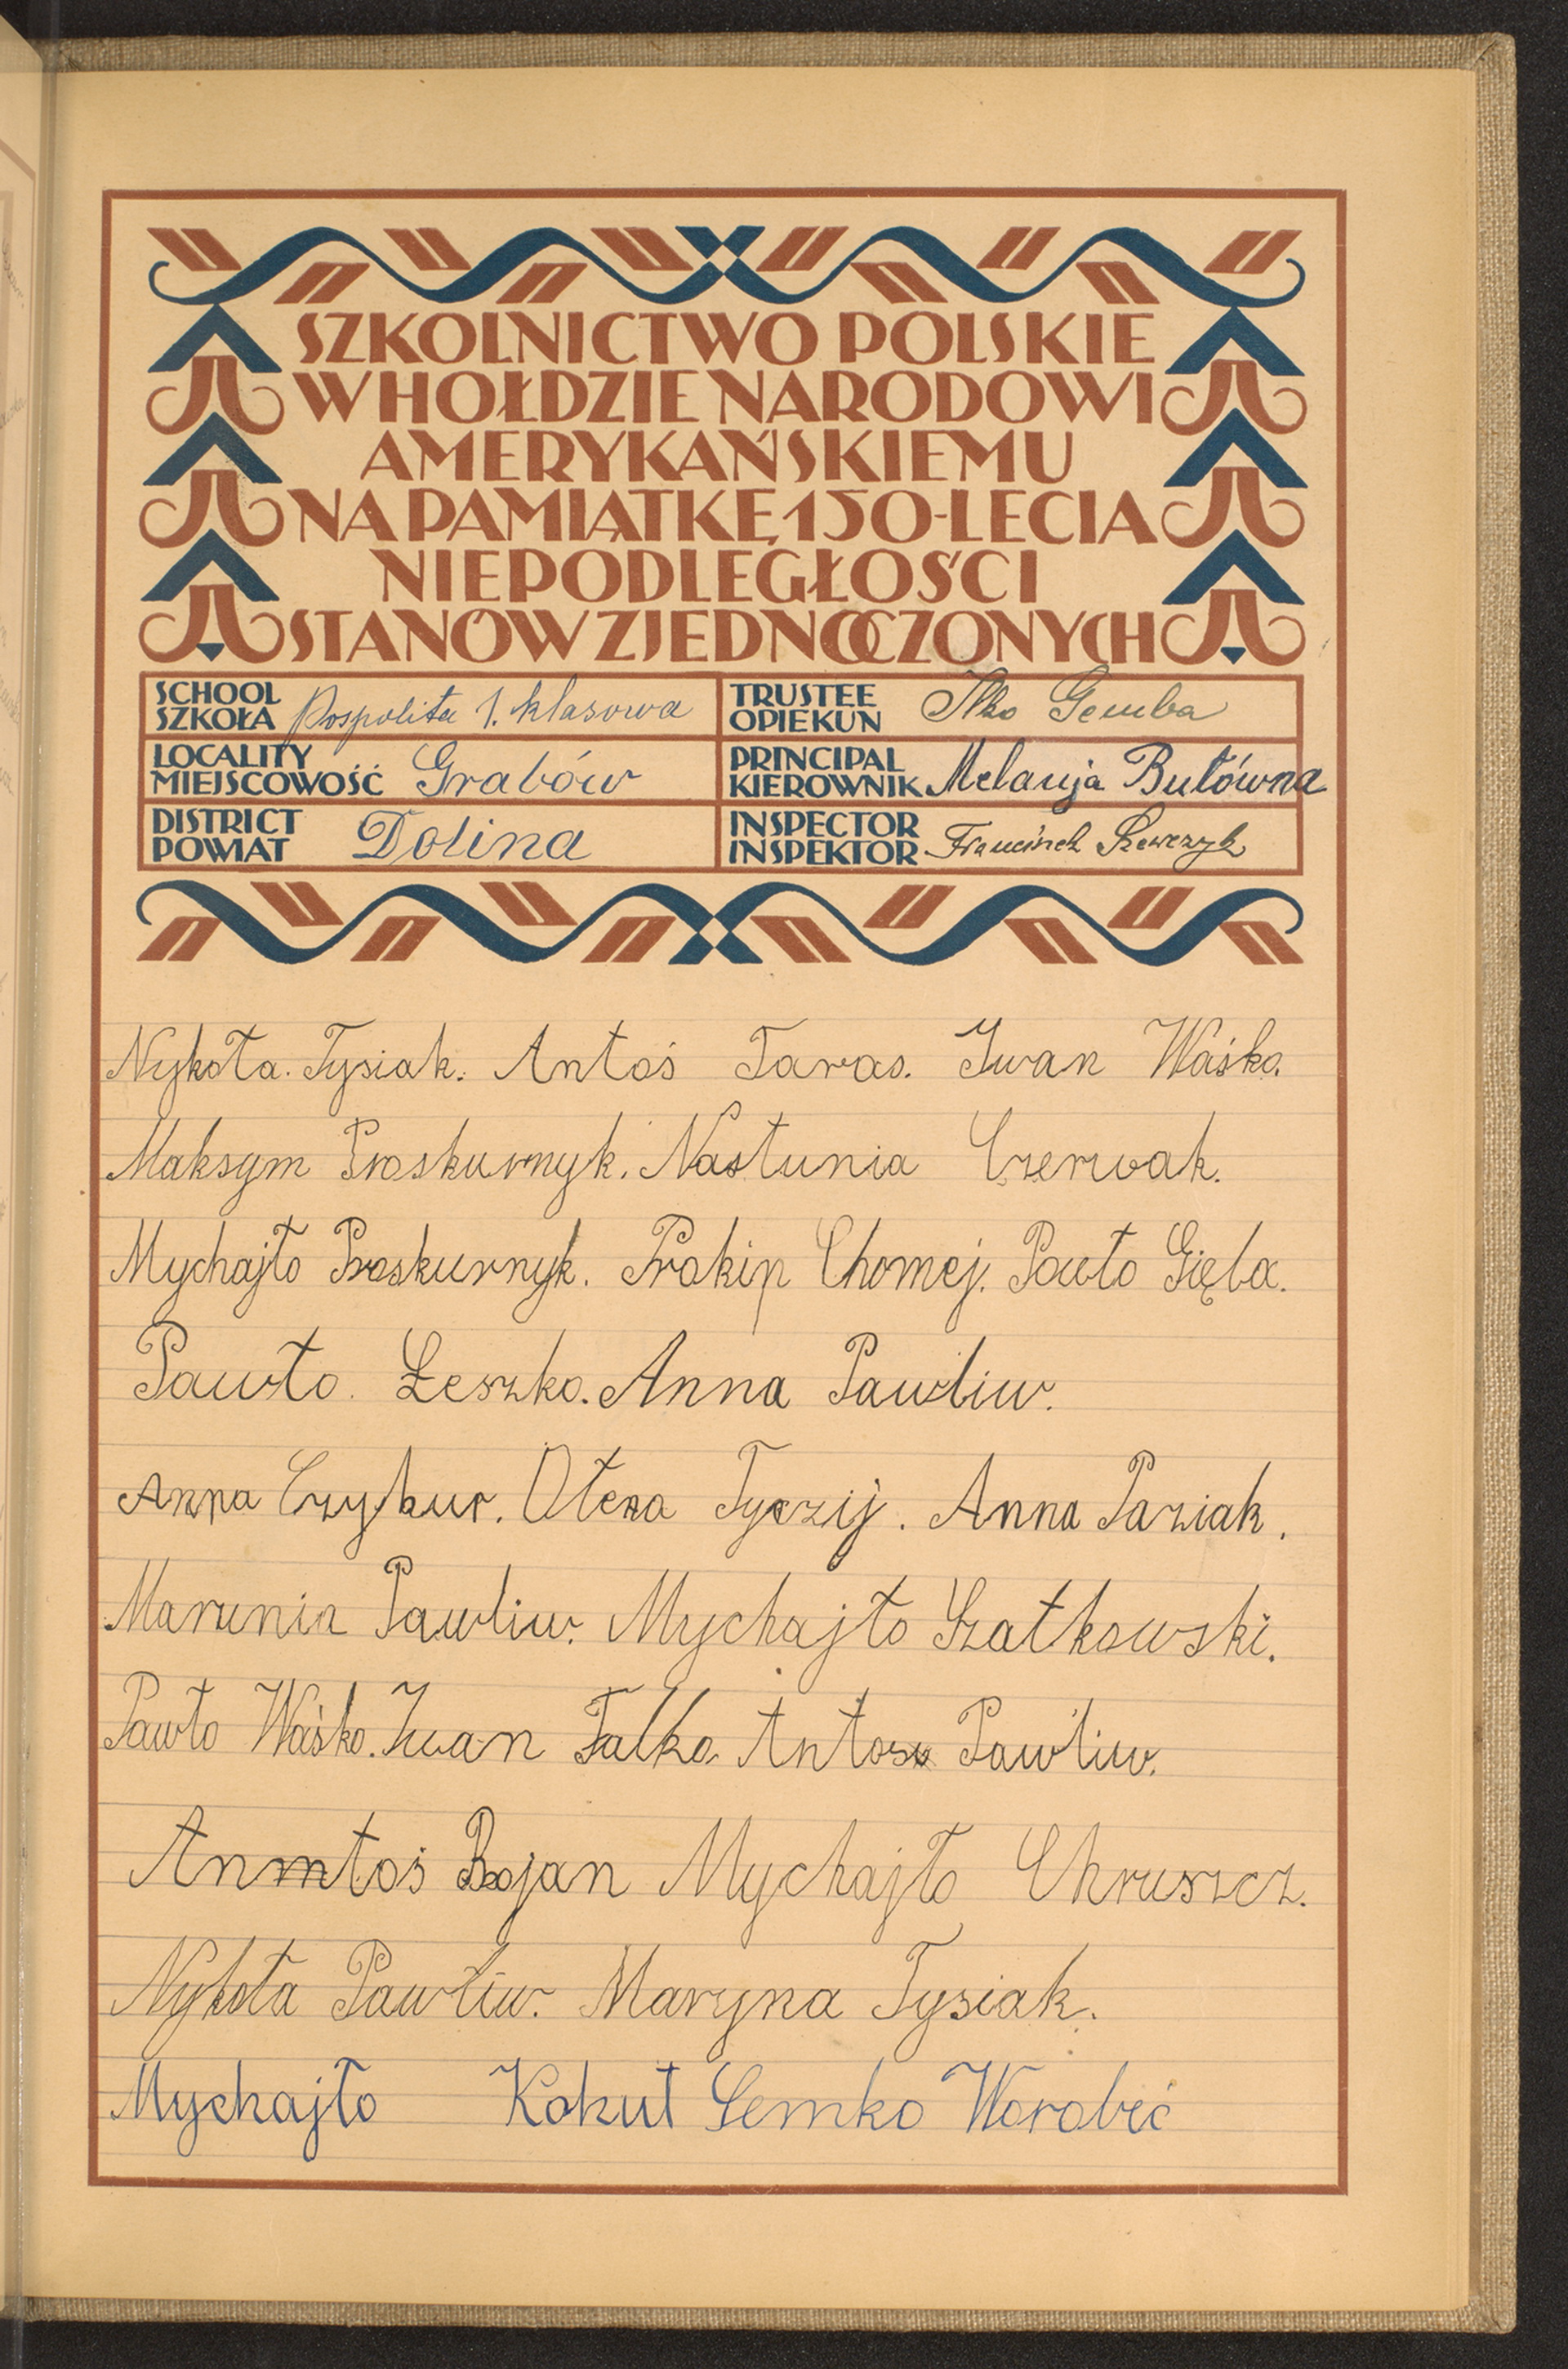 SZKOLNICTWO POLSKIE
W HOŁDZIE NARODOWI
AMERYKAŃSKIEMU
NA PAMIĄTKĘ 150-LECIA
NIEPODLEGŁOŚCI
STANÓW ZJEDNOCZONYCH
SCHOOL
SZKOŁA Pospolita 1. klasowa
TRUSTEE
OPIEKUN Ilko Gemba
LOCALITY
MIEJSCOWOŚĆ Grabów
PRINCIPAL
KIEROWNIK Melanja Bułówna
DISTRICT
POWIAT Dolina
INSPECTOR
INSPEKTOR Franciszek Szewczyk
Nykoła. Tysiak. Antoś Taras. Iwan Waśko.
Maksym Proskurnyk. Nastunia Czerwak.
Mychajło Proskurnyk. Prokip Chomej. Pawło Gięba.
Pawło. Łeszko. Anna Pawliw.
Anna Czykur. Ołena Tyczij. Anna Paziak.
Marunia Pawliw. Mychajło Szatkowski.
Pawło Waśko. Iwan Falko Antoś Pawliw.
Anmtoś Bojan Mychajło Chruszcz.
Nykoła Pawliw. Maryna Tysiak.
Mychajło Kokut Semko Worobeć